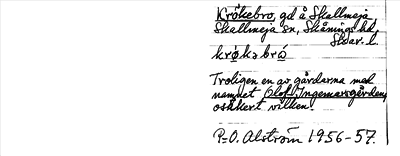 Krökebro, gd å Skallmeja,
Skallmeja sn, Skånings hd,
Skar. l.
krø̀kəbrò
Troligen en av gårdarna med
namnet Olof Ingemarsgården,
osäkert vilken.
P-O. Alström 1956-57.